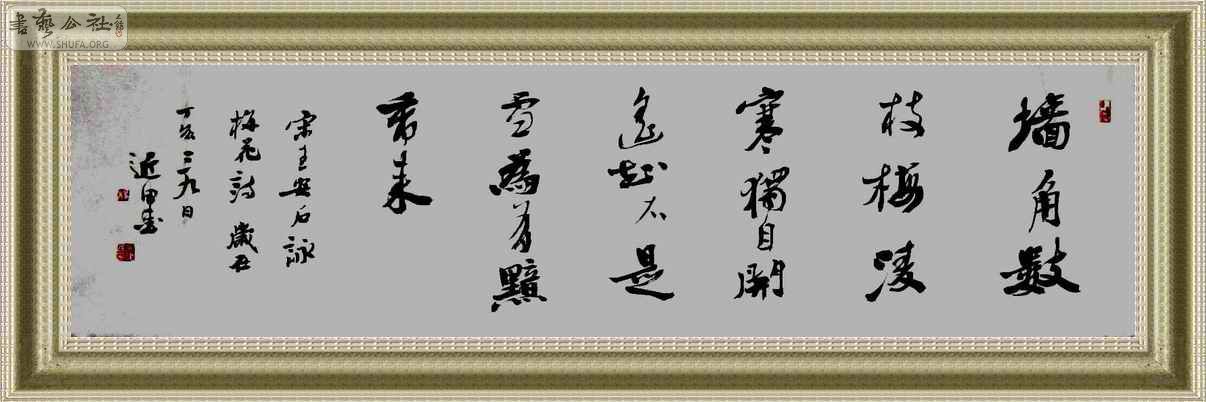 書藝公社
WWW.SHUFA.ORG
墙角數
枝梅凌
寒獨自開
遙知不是
雪為有黯
香来
宋王安石詠
梅花詩 歲在
丁亥 九日
近 書